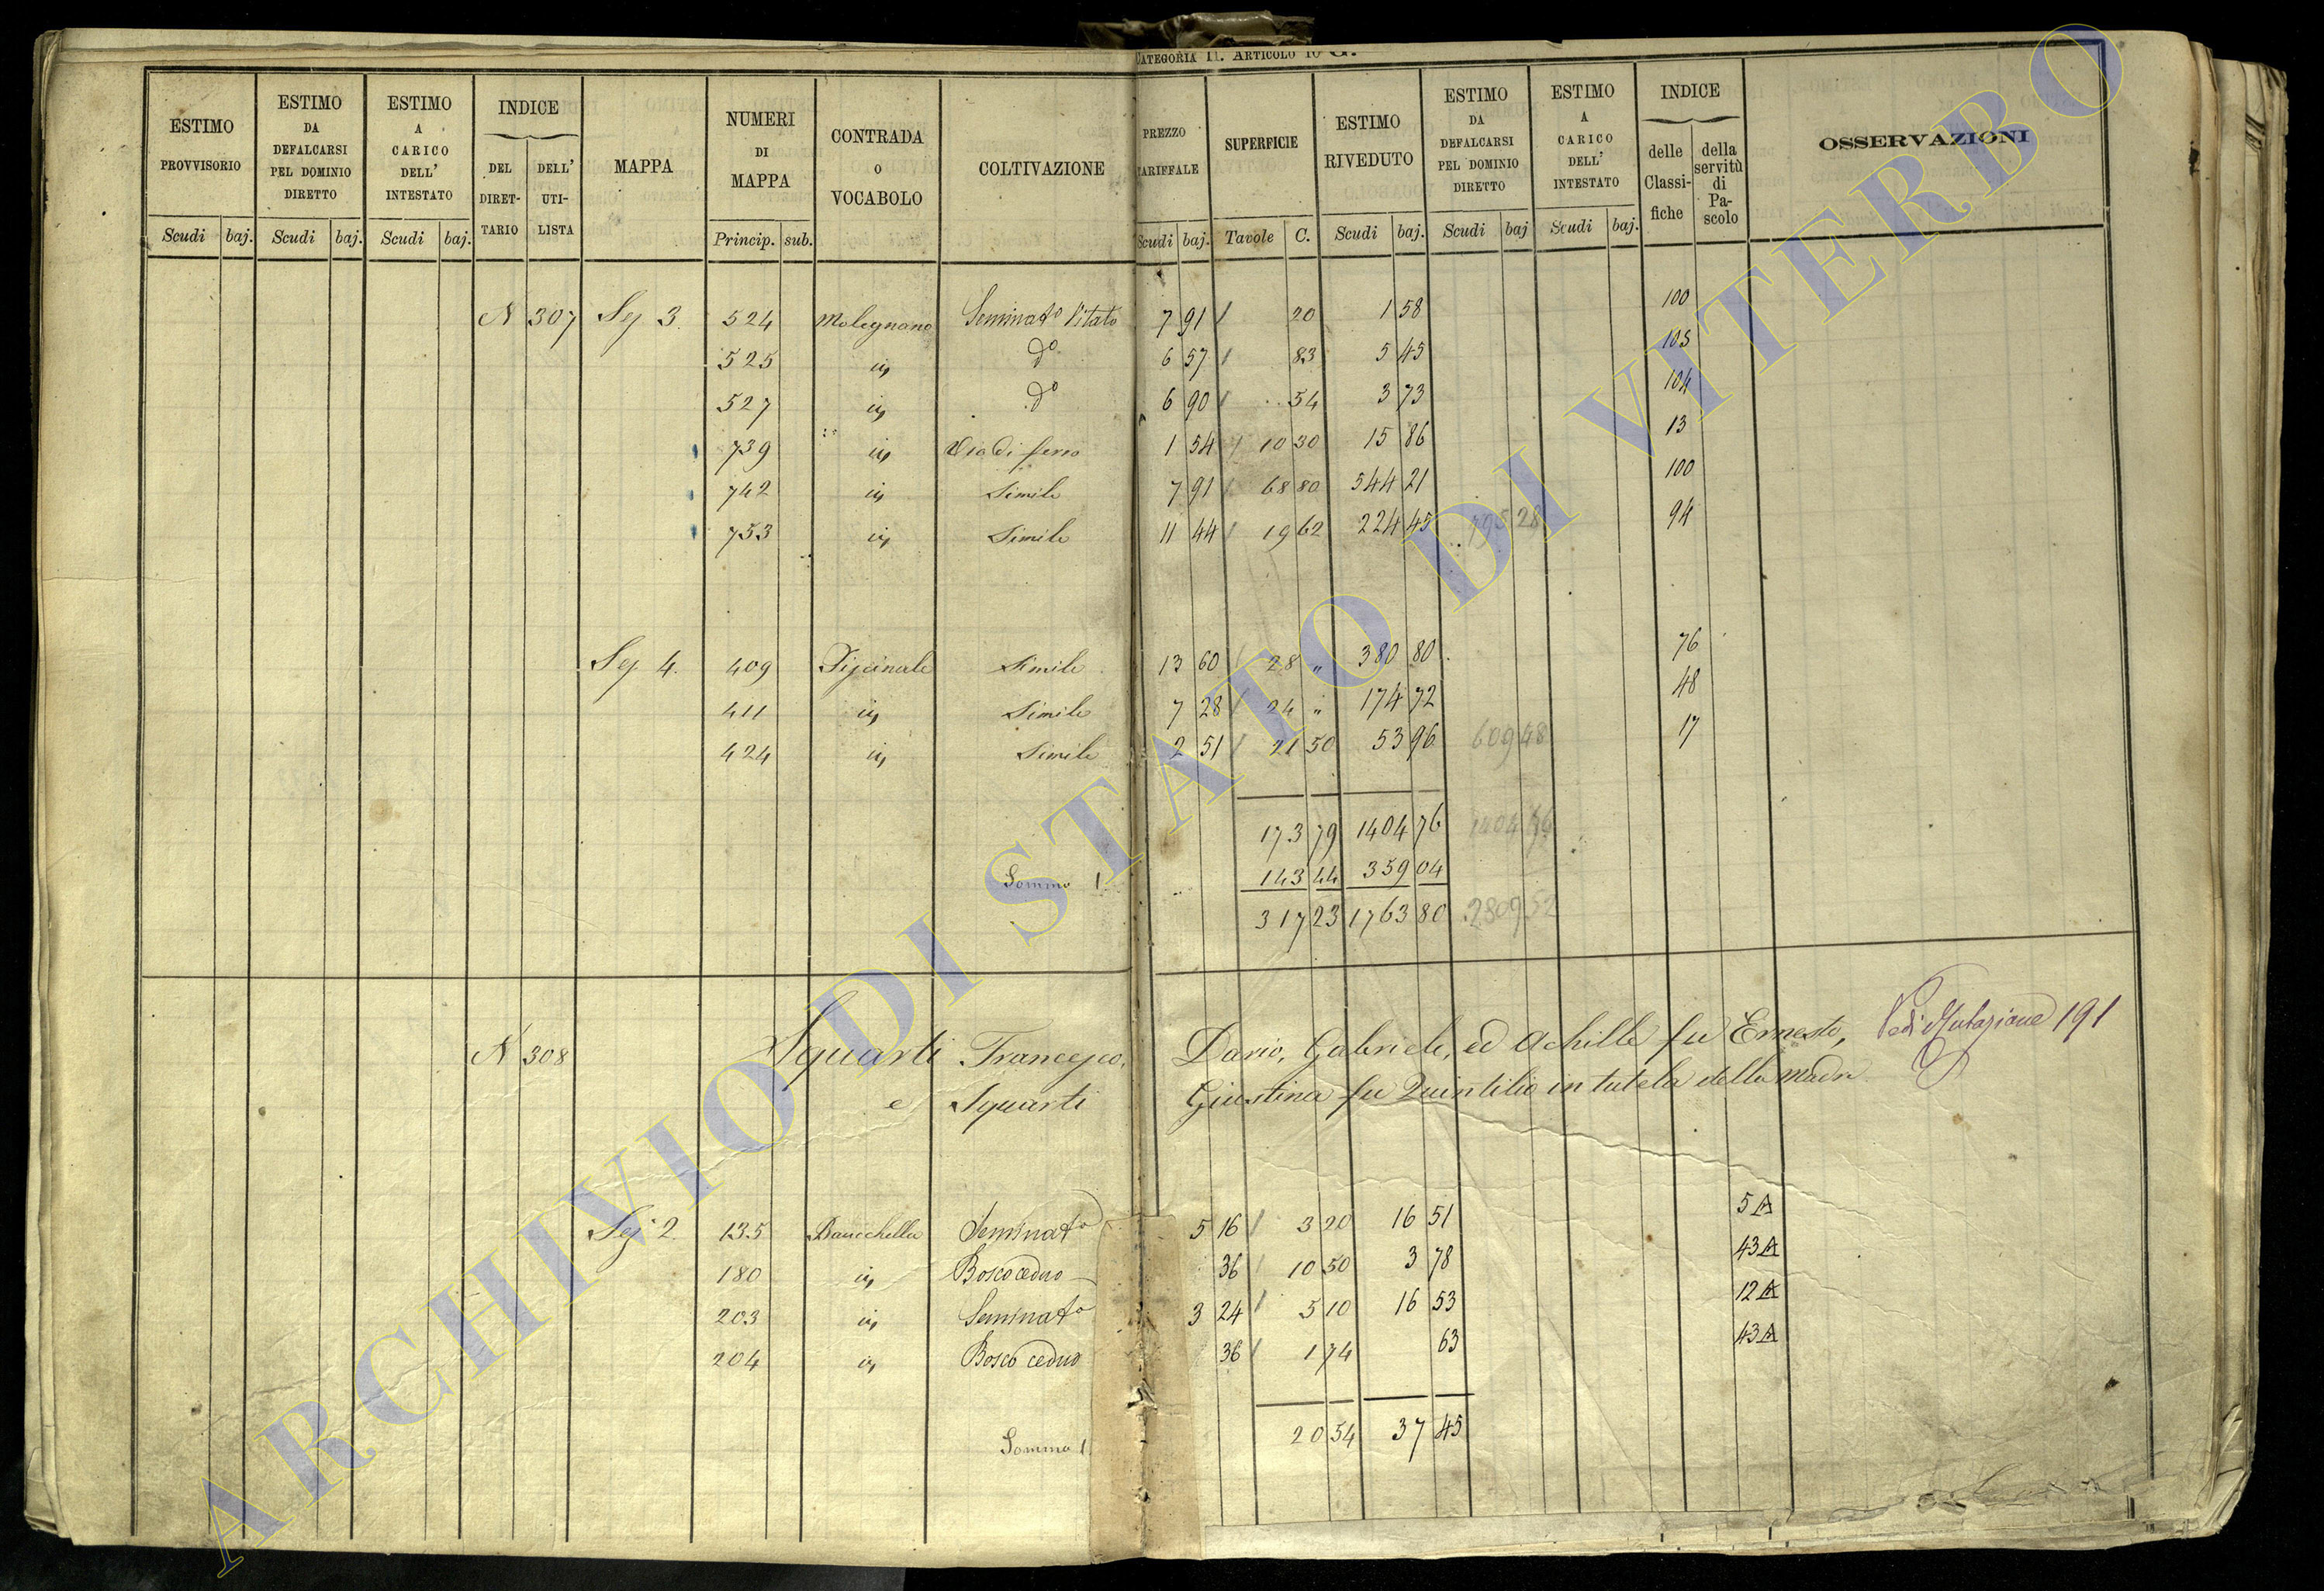 CATEGORIA II. ARTICOLO 10 G.
ESTIMO PROVVISORIO Scudi baj. ESTIMO DA DEFALCARSI PEL DOMINIO DIRETTO Scudi baj. ESTIMO A CARICO DELL' INTESTATO Scudi baj. INDICE DEL DIRETTARIO DELL' UTILISTA MAPPA NUMERI DI MAPPA Princip. sub. CONTRADA O VOCABOLO COLTIVAZIONE PREZZO TARIFFALE Scudi baj. SUPERFICIE Tavole C. ESTIMO RIVEDUTO Scudi baj. ESTIMO DA DEFALCARSI PEL DOMINIO DIRETTO Scudi baj ESTIMO A CARICO DELL' INTESTATO Scudi baj. INDICE delle Classifiche della servitù di Pascolo OSSERVAZIONI
N 307 Sez 3. 524 Molegnano Seminato Vitato 7 91 / 20 1 58 100
525 iv d° 6 57 / 83 5 45 105
527 iv d° 6 90 / 54 3 73 104
739 iv 1 54 / 10 30 15 86 13
742 iv Simile 7 91 / 68 80 544 21 100
753 iv Simile 11 44 / 19 62 224 45 795 28 94
Sez 4. 409 Simile 13 60 / 28 " 380 80 76
411 iv Simile 7 28 / 24 " 174 72 48
424 iv Simile 2 51 / 21 50 53 96 609 48 17
173 79 1404 76 1404 76
Somma 143 44 359 04
317 23 1763 80 2809 52
N 308 Squarti Francesco, Dario, Gabriele, ed Achille fu Ernesto, Vedi Mutazione 191
e Squarti Giustina fu Quintilio in tutela della madre
Sez 2. 135 Banchella Seminato 5 16 / 3 20 16 51 5 A
180 iv Bosco ceduo 36 / 10 50 3 78 43 A
203 iv Seminato 3 24 / 5 10 16 53 12 A
204 iv Bosco ceduo 36 / 1 74 63 43 A
Somma 20 54 37 45
ARCHIVIO DI STATO DI VITERBO